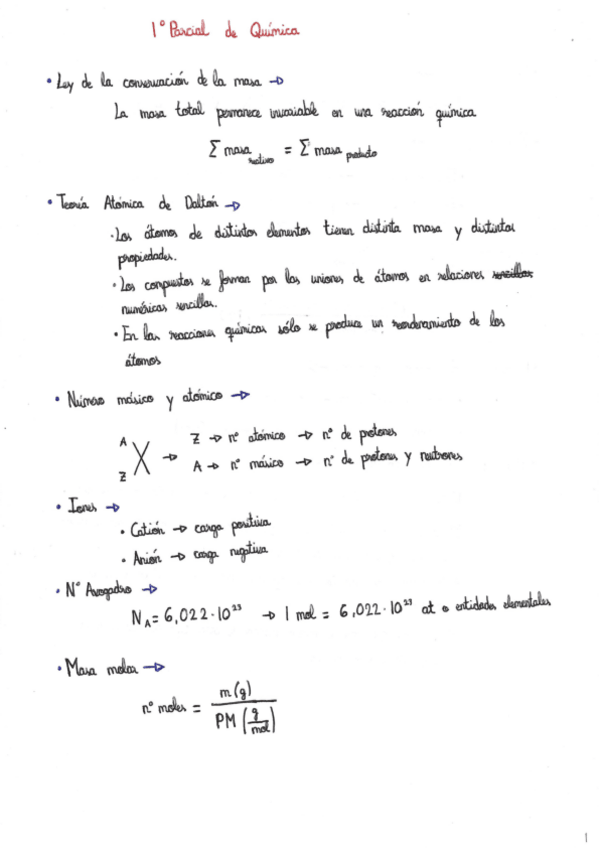 1º Parcial de Química
• Ley de la conservación de la masa →
La masa total permanece invariable en una reacción química
Σ masa reactivo = Σ masa producto
• Teoría Atómica de Daltón →
• Los átomos de distintos elementos tienen distinta masa y distintas
propiedades.
• Los compuestos se forman por las uniones de átomos en relaciones sencillas
numéricas sencillas.
• En las reacciones químicas sólo se produce un reordenamiento de los
átomos
• Número másico y atómico →
A
X → Z → nº atómico → nº de protones
Z
A → nº másico → nº de protones y neutrones
• Iones →
• Catión → carga positiva
• Anión → carga negativa
• Nº Avogadro →
N_A = 6,022·10²³ → 1 mol = 6,022·10²³ at o entidades elementales
• Masa molar →
nº moles = m(g) / PM (g/mol)
1